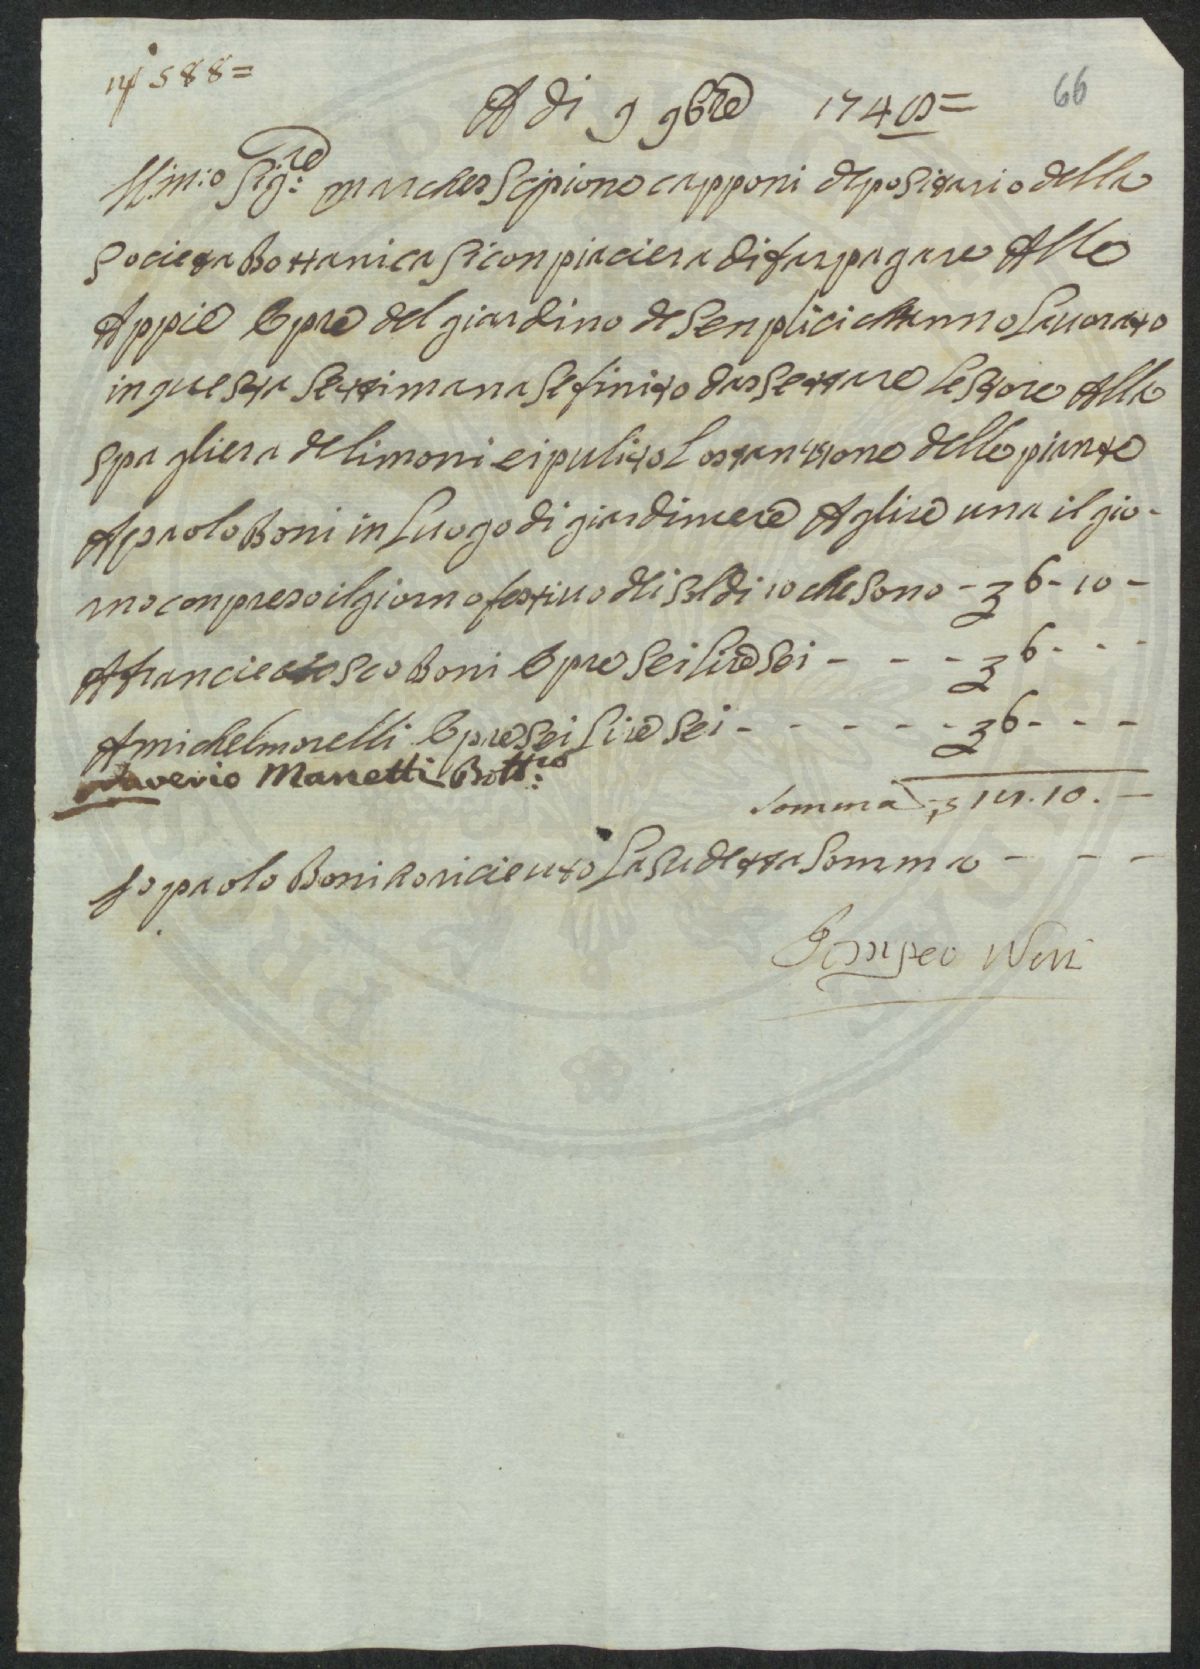 N° 588=
66
A di 9 9bre 174
Ill.mo Sig:re marches Scipione capponi depositario della
Societa Bottanica Siconpiaciera difarpagare Alle
Appie Opre del giardino de Senplici channo Lauorato
inquesta Settimana Sefinito dassettare Lestore Alla
Spagliera delimoni eipulito Lostanzone delle piante
Apaolo Boni in Luogo di giardiniere Aglire una il gio-
rno conpreso ilgiorno festiuo di Soldi 10 che Sono - 6 - 10 -
Afranciesco Boni Opre Sei Lire Sei - - - 6 - - -
Amichelmorelli Opre Sei Lire Sei - - - - - - 6 - - -
Saverio Manetti Bott:co
Somma 10. -
Io paolo Boni o riceuto La Sudetta Somma - - -
Pompeo Neri